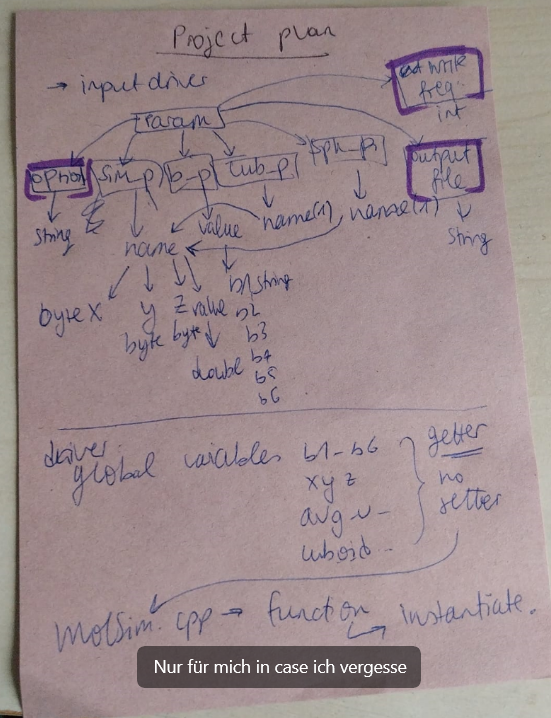 Project plan
→ input driver
out write
freq.
int
param
option
sim_p
b_p
cub_p
sph_p
output
file
string
name
value
name(1)
name(1)
string
byte x
y
byte
z
byte
value
double
b1 string
b2
b3
b4
b5
b6
driver.
global variables
b1 - b6
x y z
avg_v_
cuboid -
getter
no
setter
MolSim.cpp → function → instantiate.
Nur für mich in case ich vergesse